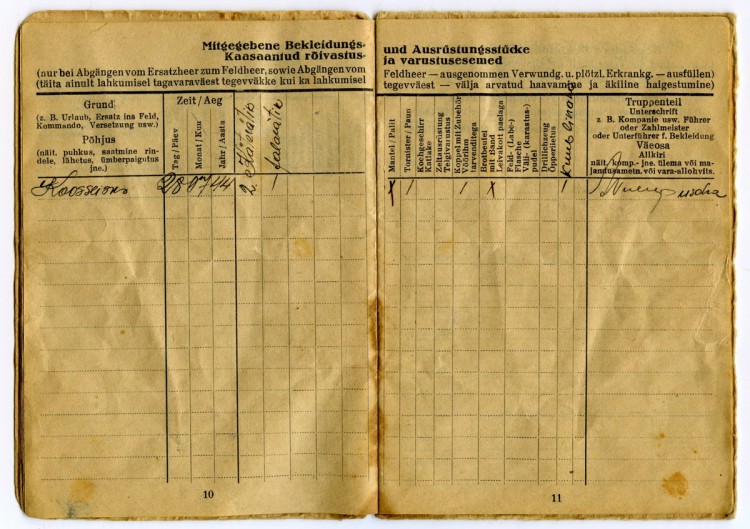 Mitgegebene Bekleidungs-
Kaasaantud rõivastus-
(nur bei Abgängen vom Ersatzheer zum Feldheer, sowie Abgängen vom
(täita ainult lahkumisel tagavaraväest tegevväkke kui ka lahkumisel
Grund
(z. B. Urlaub, Ersatz ins Feld,
Kommando, Versetzung usw.)
Põhjus
(näit. puhkus, saatmine rin-
dele, lähetus, ümberpaigutus
jne.)
Zeit / Aeg
Tag / Päev
Monat / Kuu
Jahr / Aasta
28 07 44
10
und Ausrüstungsstücke
ja varustusesemed
Feldheer — ausgenommen Verwundg. u. plötzl. Erkrankg. — ausfüllen)
tegevväest — välja arvatud haavamine ja äkiline haigestumine)
Mantel / Palit
Tornister / Paun
Kochgeschirr
Katlake
Zeltausrüstung
Telgivarustus
Koppel mit Zubehör
Vöörihm
tarvenditega
Brotbeutel
mit Band
Leivakott paelaga
Feld- (Labe-)
Flasche
Välj- (karastus-)
pudel
Drillichzeug
Õpperiietus
Truppenteil
Unterschrift
z. B. Kompanie usw. Führer
oder Zahlmeister
oder Unterführer f. Bekleidung
Väeosa
Allkiri
näit. komp.- jne. ülema või ma-
jandusametn. või vara-allohvits.
X 1 1 X 1
11